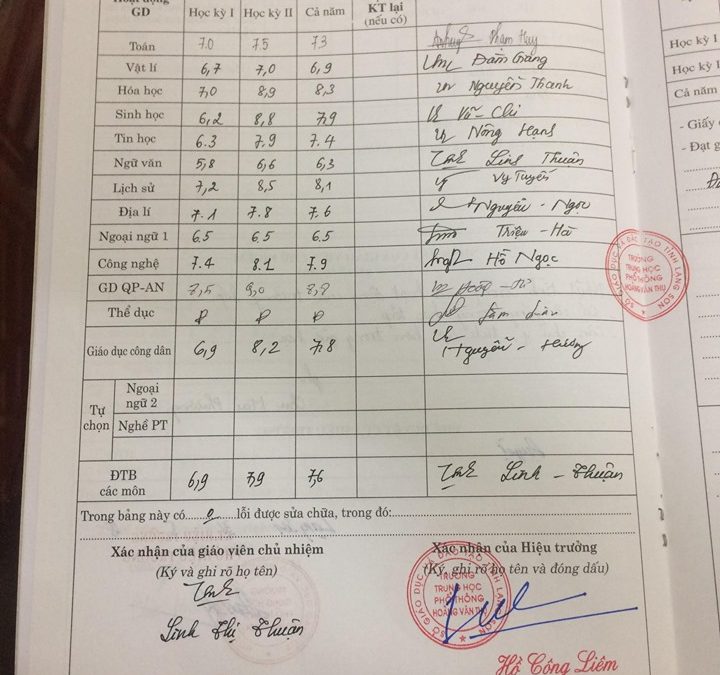 Hoạt động GD Học kỳ I Học kỳ II Cả năm KT lại (nếu có)
Toán 7.0 7.5 7.3 Phạm Huy
Vật lí 6,7 7,0 6,9 Đàm Giang
Hóa học 7,0 8,9 8,3 Nguyễn Thanh
Sinh học 6,2 8,8 7,9 Vũ - Chi
Tin học 6.3 7.9 7.4 Nông Hạnh
Ngữ văn 5,8 6,6 6,3 Linh Thuận
Lịch sử 7,2 8,5 8,1 Vy Tuyến
Địa lí 7.1 7.8 7.6 Nguyễn - Ngọc
Ngoại ngữ 1 6.5 6.5 6.5 Triệu - Hà
Công nghệ 7.4 8.1 7.9 Hồ Ngọc
GD QP-AN 7,5 9,0
Thể dục Đ Đ Đ
Giáo dục công dân 6,9 8,2 7,8 Nguyễn - Hương
Tự chọn
Ngoại ngữ 2
Nghề PT
ĐTB các môn 6,9 7,9 7,6 Linh - Thuận
Trong bảng này có 0 lỗi được sửa chữa, trong đó:
Xác nhận của giáo viên chủ nhiệm
(Ký và ghi rõ họ tên)
Linh Thị Thuận
Xác nhận của Hiệu trưởng
(Ký, ghi rõ họ tên và đóng dấu)
SỞ GIÁO DỤC VÀ ĐÀO TẠO TỈNH LẠNG SƠN
TRƯỜNG
TRUNG HỌC
PHỔ THÔNG
HOÀNG VĂN THỤ
Hồ Công Liêm
SỞ GIÁO DỤC VÀ ĐÀO TẠO TỈNH LẠNG SƠN
TRƯỜNG
TRUNG HỌC
PHỔ THÔNG
HOÀNG VĂN THỤ
Học kỳ I
Học kỳ I
Cả năm
- Giấy
- Đạt g